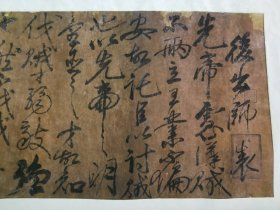 後出師表
先帝慮漢賊
不兩立王業不偏
安故託臣以討賊
也以先帝之明
量臣之才故知
伐賊才弱敵強